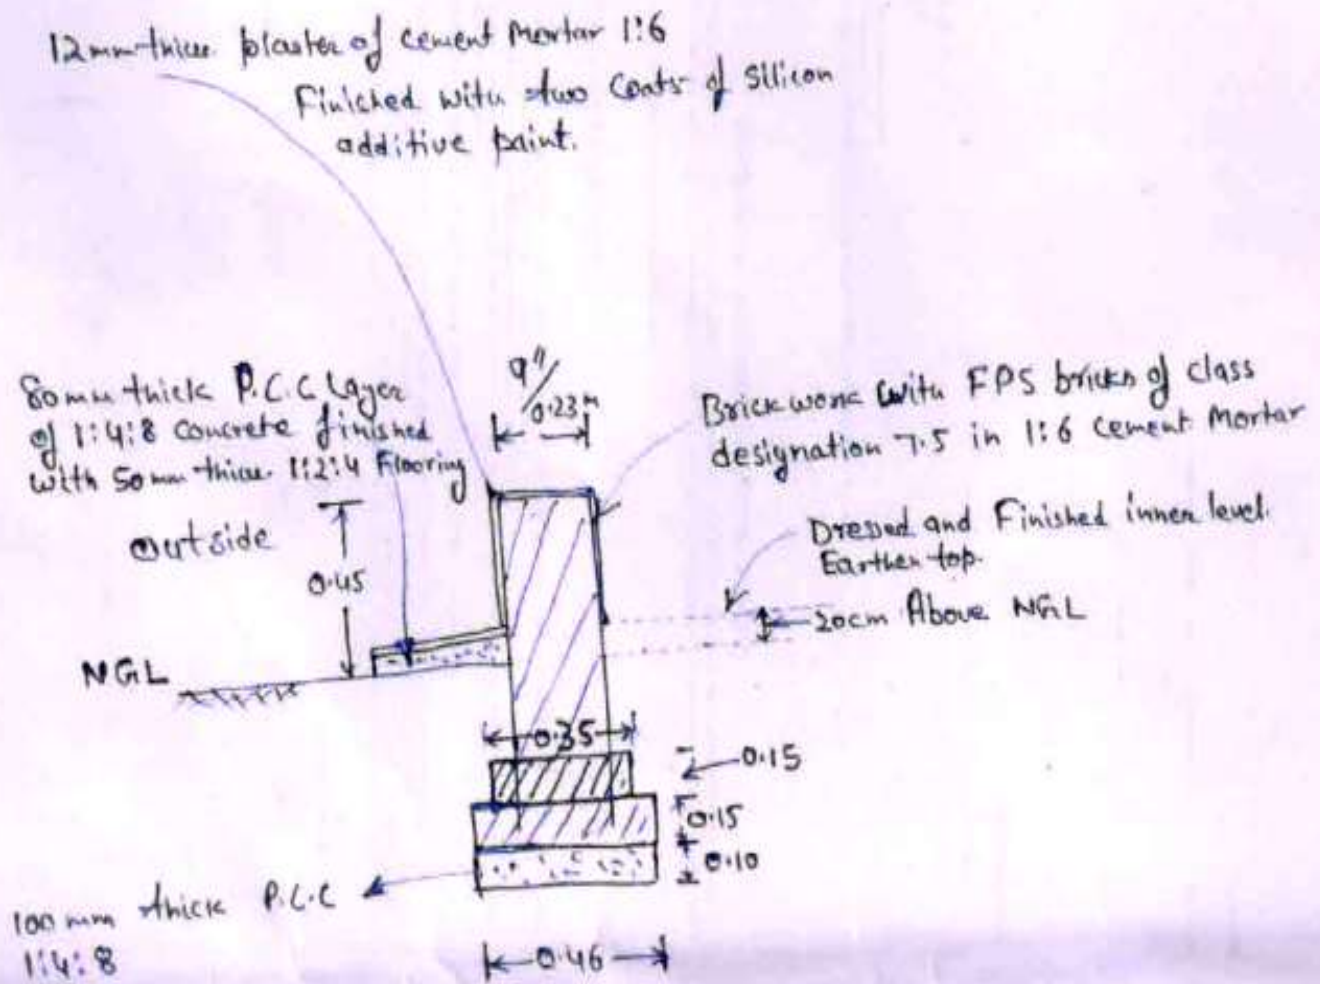 12mm thick plaster of cement Mortar 1:6
Finished with two coats of silicon
additive paint.
80mm thick P.C.C Layer
of 1:4:8 concrete finished
with 50mm thick 1:2:4 Flooring
outside
0.45
NGL
9"/0.23m
Brick work with FPS bricks of class
designation 7.5 in 1:6 cement Mortar
Dressed and Finished inner level.
Earthen top.
20cm Above NGL
0.35
0.15
0.15
0.10
100mm thick P.C.C
1:4:8
0.46